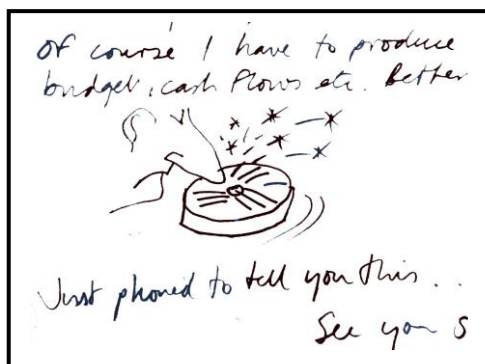 Of course I have to produce
budget, cash flows etc. Better
Just phoned to tell you this..
See you S